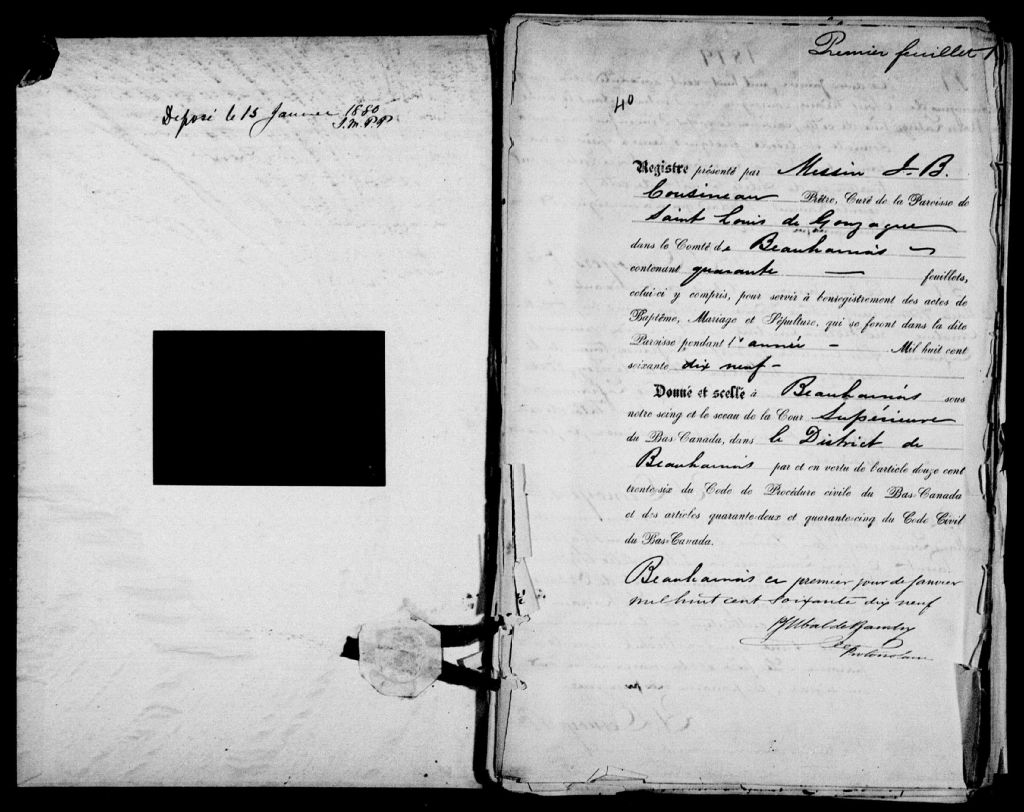 Déposé le 15 Janvier 1880
J.M.P.P
Premier feuillet
40
Registre présenté par Messire J. B.
Cousineau Prêtre, Curé de la Paroisse de
Saint Louis de Gonzague
dans le Comté de Beauharnois
contenant quarante feuillets,
celui-ci y compris, pour servir à l'enregistrement des actes de
Baptême, Mariage et Sépulture, qui se feront dans la dite
Paroisse pendant l'année Mil huit cent
soixante dix neuf
Donné et scellé à Beauharnois sous
notre seing et le sceau de la Cour Supérieure
du Bas-Canada, dans le District de
Beauharnois par et en vertu de l'article douze cent
trente-six du Code de Procédure civile du Bas-Canada
et des articles quarante-deux et quarante-cinq du Code Civil
du Bas-Canada.
Beauharnois ce premier jour de Janvier
mil huit cent soixante dix neuf